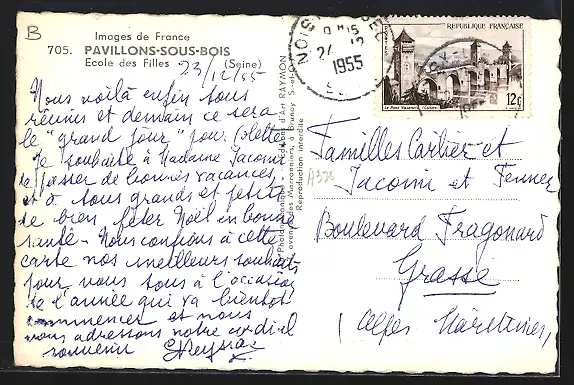 B
Images de France
705. PAVILLONS-SOUS-BOIS
Ecole des Filles (Seine)
23/12/55
Nous voilà enfin tous
réunis et demain ce sera
le "grand jour" pour
Je souhaite à Madame Jacomi
de passer de bonnes vacances
et à tous grands et petits
de bien fêter Noël en bonne
santé - Nous confions à cette
carte nos meilleurs souhaits
pour vous tous à l'occasion
de l'année qui va bientôt
commencer et nous
vous adressons notre cordial
souvenir
Editions d'Art RAYMON
avenue des Marronniers, à Brunoy S.-et-O.
Reproduction interdite
A376
24 12
1955
REPUBLIQUE FRANÇAISE
12F
Familles Carlier et
Jacomi et Fenner
Boulevard Fragonard
Grasse
(Alpes Maritimes)